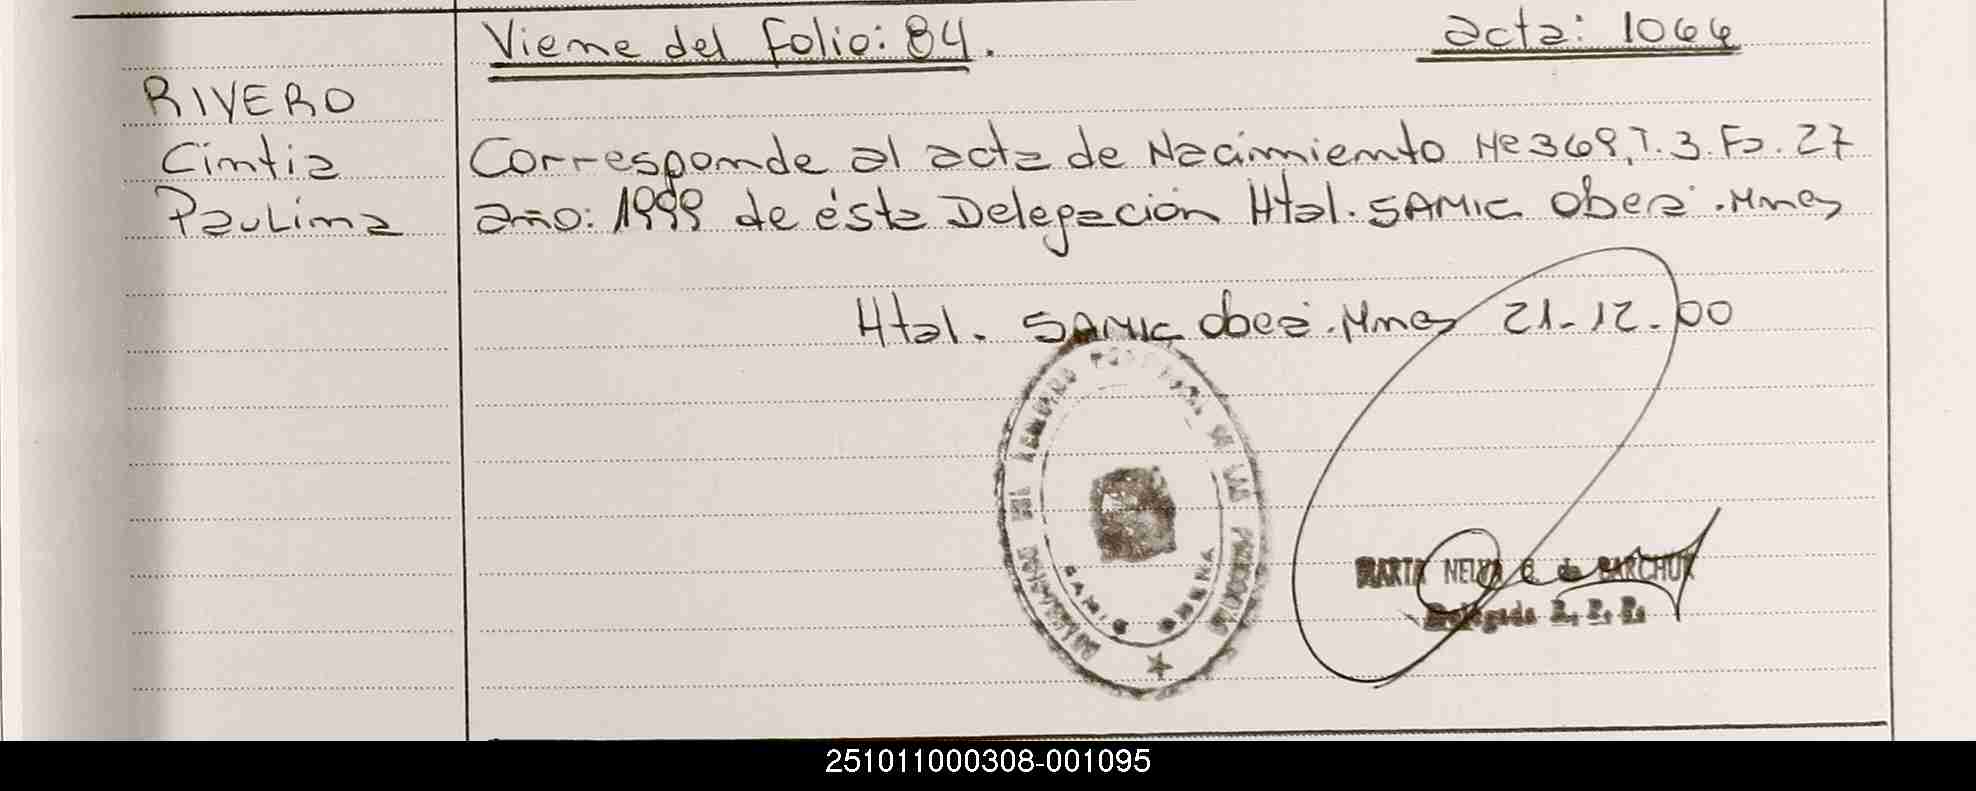 Viene del folio: 84. acta: 1064
RIVERO
Cintia
Paulina
Corresponde al acta de Nacimiento Nº 369, T. 3. Fo. 27
año: 1999 de ésta Delegación Htal. SAMIC Oberá. Mnes
Htal. SAMIC Oberá. Mnes 21-12-00
MARTA NELLY de BARCHUK
Delegada R. P. P.
251011000308-001095